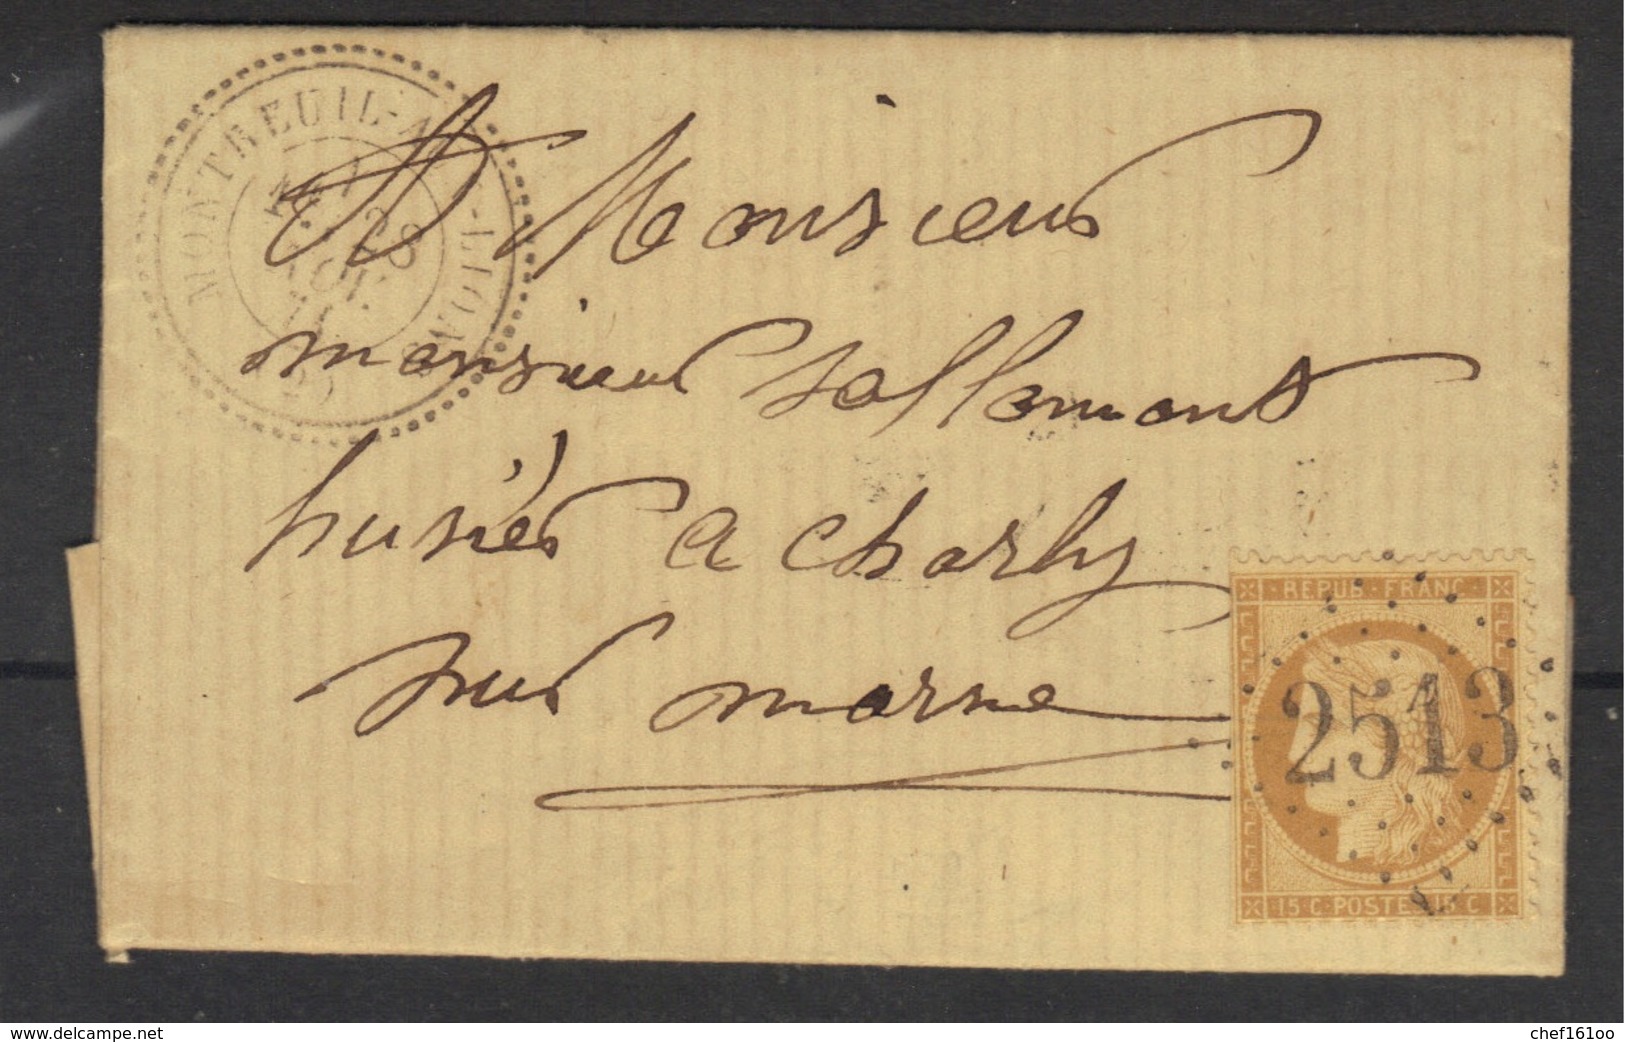 MONTREUIL-AUX-LIONS
28
A Monsieur
monsieur Sallemont
husies a charly
sur marne
REPUB·FRANC
2513
15 C·POSTES·15 C
www.delcampe.net
chef16100